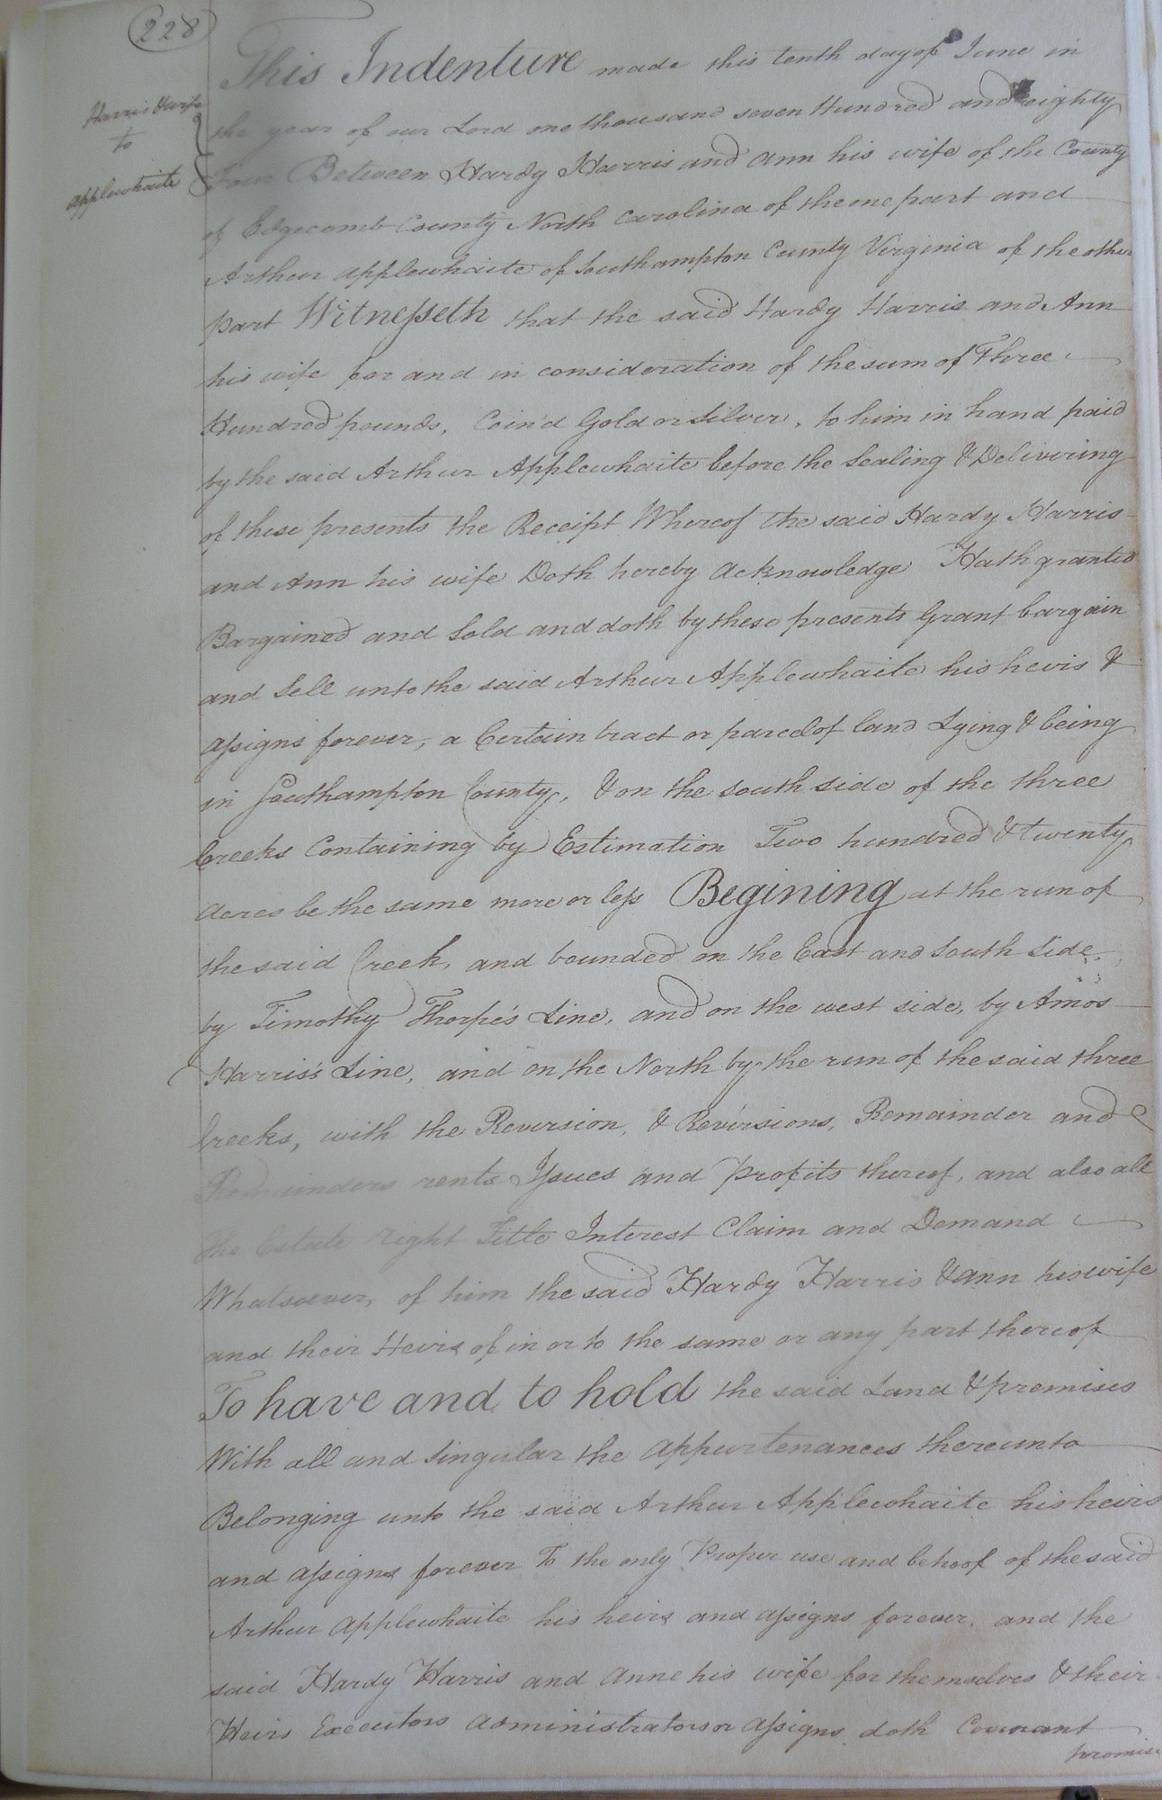 228
Harris Hardy
to
Applewhaite
This Indenture made this tenth day of June in
the year of our Lord one thousand seven Hundred and eighty
Four Between Hardy Harris and Ann his wife of the County
of Edgecomb County North Carolina of the one part and
Arthur Applewhaite of Southampton County Virginia of the other
part Witnesseth that the said Hardy Harris and Ann
his wife for and in consideration of the sum of Three
Hundred pounds, Coin'd Gold or Silver, to him in hand paid
by the said Arthur Applewhaite before the Sealing & Delivering
of these presents the Receipt Whereof the said Hardy Harris
and Ann his wife Doth hereby acknowledge Hath granted
Bargained and Sold and doth by these presents Grant bargain
and Sell unto the said Arthur Applewhaite his heirs &
assigns forever, a Certain tract or parcel of land Lying & being
in Southampton County, & on the south side of the three
Creeks Containing by Estimation Two hundred & twenty
acres be the same more or less Begining at the run of
the said Creek, and bounded on the East and South Side
by Timothy Thorpe's Line, and on the west side, by Amos
Harris's Line, and on the North by the run of the said three
Creeks, with the Reversion, & Reversions, Remainder and
Remainders rents Issues and profits thereof, and also all
the Estate right Title Interest Claim and Demand
Whatsoever, of him the said Hardy Harris & Ann his wife
and their Heirs of in or to the same or any part thereof
To have and to hold the said Land & premises
With all and Singular the appurtenances thereunto
Belonging unto the said Arthur Applewhaite his heirs
and assigns forever To the only Proper use and behoof of the said
Arthur Applewhaite his heirs and assigns forever, and the
said Hardy Harris and Anne his wife for themselves & their
Heirs Executors administrators or assigns doth Covenant
promise